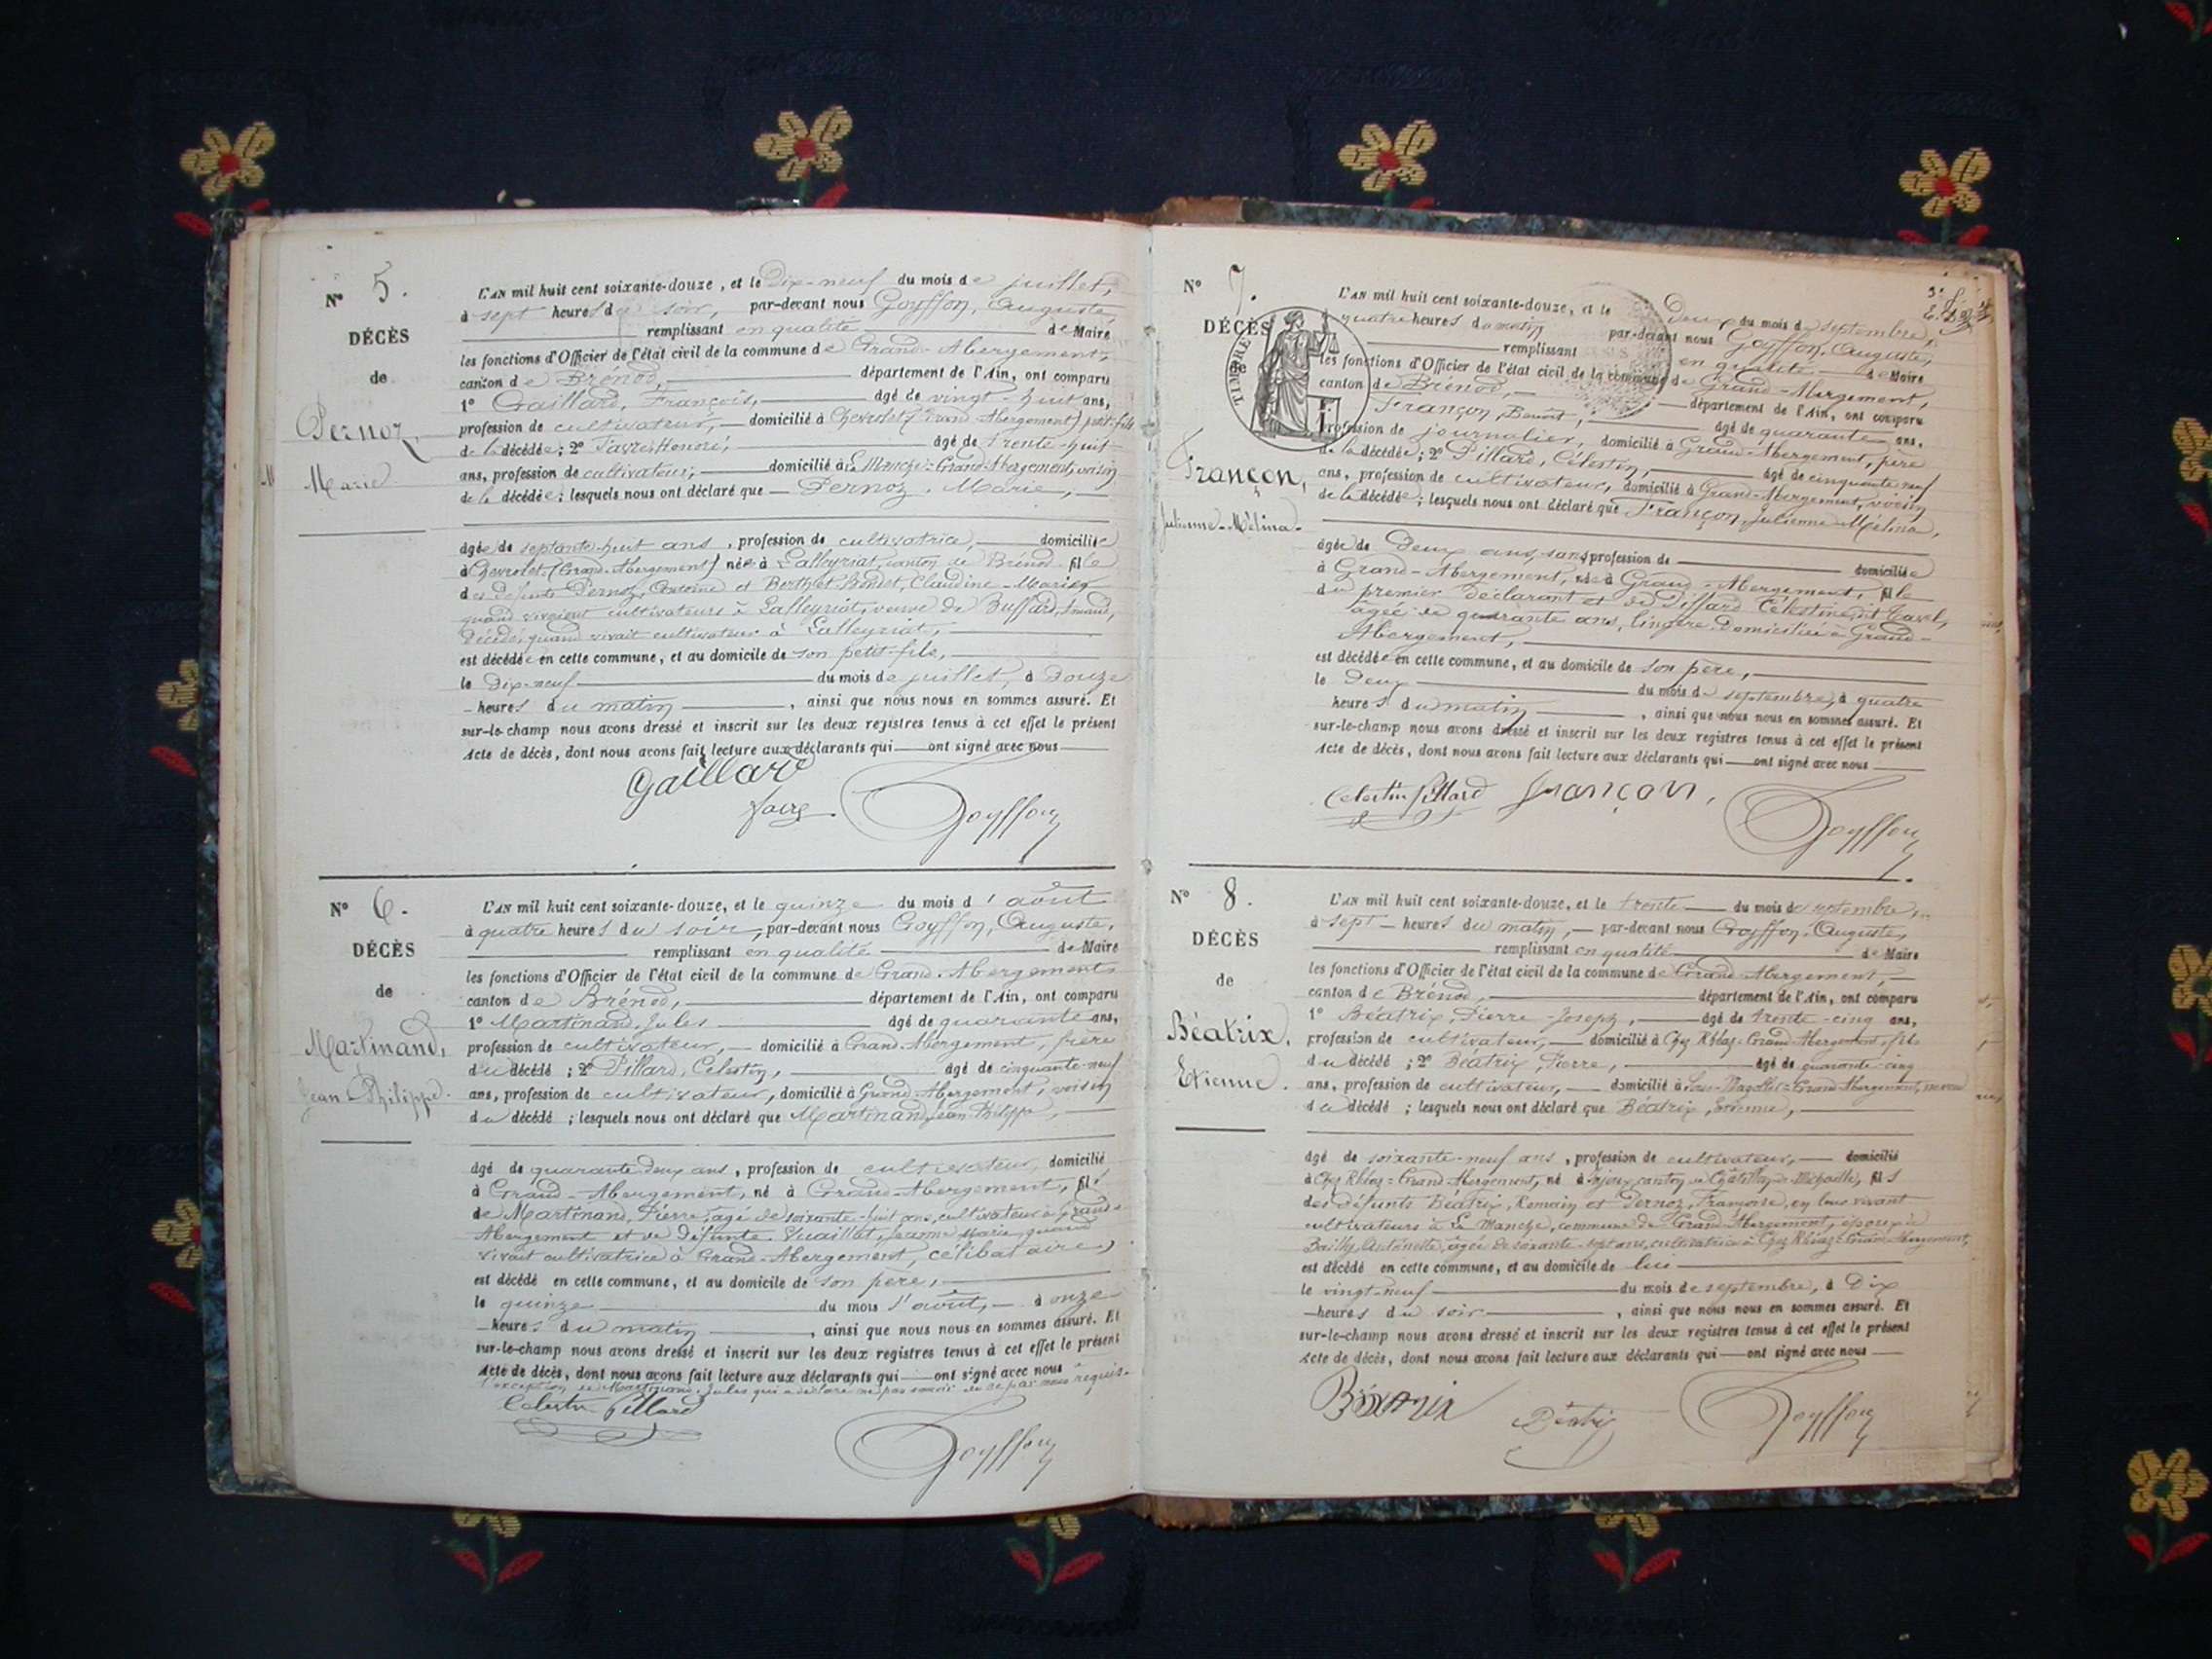 N° 5.
DÉCÈS
de
Pernoz,
Marie
L'AN mil huit cent soixante-douze, et le Dix-neuf du mois de juillet,
à sept heures du soir, par-devant nous Goyffon, Auguste,
remplissant en qualité de Maire
les fonctions d'Officier de l'état civil de la commune de Grand-Abergement,
canton de Brénod, département de l'Ain, ont comparu
1° Gaillard, François, âgé de vingt-huit ans,
profession de cultivateur, domicilié à Chevrolet (Grand Abergement) petit-fils
de la décédée; 2° Favre, Honoré, âgé de trente-huit
ans, profession de cultivateur, domicilié à La Manche-Grand-Abergement, voisin
de la décédée; lesquels nous ont déclaré que Pernoz, Marie,
âgée de septante-huit ans, profession de cultivatrice, domiciliée
à Chevrolet (Grand-Abergement) née à Lalleyriat, canton de Brénod fille
des défunts Pernoz, Antoine et Berthet-Bondet, Claudine-Marie,
quand vivaient cultivateurs à Lalleyriat, veuve de Buffard,
Décédé, quand vivait cultivateur à Lalleyriat,
est décédée en cette commune, et au domicile de son petit-fils,
le Dix-neuf du mois de juillet, à Douze
heures du matin, ainsi que nous nous en sommes assuré. Et
sur-le-champ nous avons dressé et inscrit sur les deux registres tenus à cet effet le présent
Acte de décès, dont nous avons fait lecture aux déclarants qui ont signé avec nous
Gaillard
favre
Goyffon
N° 6.
DÉCÈS
de
Martinand,
Jean Philippe.
L'AN mil huit cent soixante-douze, et le quinze du mois d'août
à quatre heures du soir, par-devant nous Goyffon, Auguste,
remplissant en qualité de Maire
les fonctions d'Officier de l'état civil de la commune de Grand-Abergement
canton de Brénod, département de l'Ain, ont comparu
1° Martinand, Jules âgé de quarante ans,
profession de cultivateur, domicilié à Grand-Abergement, frère
du décédé; 2° Pillard, Célestin, âgé de cinquante-neuf
ans, profession de cultivateur, domicilié à Grand-Abergement, voisin
du décédé; lesquels nous ont déclaré que Martinand, Jean Philippe,
âgé de quarante deux ans, profession de cultivateur, domicilié
à Grand-Abergement, né à Grand-Abergement, fils
de Martinand, Pierre, âgé de soixante-huit ans, cultivateur à Grand-
Abergement et de défunte Vuaillat, Jeanne Marie, quand
vivait cultivatrice à Grand-Abergement, célibataire,
est décédé en cette commune, et au domicile de son père,
le quinze du mois d'août, à onze
heures du matin, ainsi que nous nous en sommes assuré. Et
sur-le-champ nous avons dressé et inscrit sur les deux registres tenus à cet effet le présent
Acte de décès, dont nous avons fait lecture aux déclarants qui ont signé avec nous
l'exception de Martinand, Jules qui a déclaré ne pas savoir de ce par nous requis.
Celestin Pillard
Goyffon
N° 7.
DÉCÈS
de
TIMBRE
Françon,
Julienne-Mélina.
L'AN mil huit cent soixante-douze, et le Deux du mois de septembre,
quatre heures du matin par-devant nous Goyffon, Auguste,
remplissant en qualité de Maire
les fonctions d'Officier de l'état civil de la commune de Grand-Abergement,
canton de Brénod, département de l'Ain, ont comparu
1° Françon, Benoît, âgé de quarante ans,
profession de journalier, domicilié à Grand-Abergement, père
de la décédée; 2° Pillard, Célestin, âgé de cinquante neuf
ans, profession de cultivateur, domicilié à Grand-Abergement, voisin
de la décédée; lesquels nous ont déclaré que Françon, Julienne-Mélina,
âgée de Deux ans, sans profession de domiciliée
à Grand-Abergement, née à Grand-Abergement, fille
du premier déclarant et de Pillard Célestine dit Tavel,
âgée de quarante ans, lingère Domiciliée à Grand-
Abergement,
est décédée en cette commune, et au domicile de son père,
le Deux du mois de septembre, à quatre
heures du matin, ainsi que nous nous en sommes assuré. Et
sur-le-champ nous avons dressé et inscrit sur les deux registres tenus à cet effet le présent
Acte de décès, dont nous avons fait lecture aux déclarants qui ont signé avec nous
Celestin Pillard françon,
Goyffon
N° 8.
DÉCÈS
de
Béatrix,
Etienne.
L'AN mil huit cent soixante-douze, et le trente du mois de septembre,
à sept heures du matin, par-devant nous Goyffon, Auguste,
remplissant en qualité de Maire
les fonctions d'Officier de l'état civil de la commune de Grand-Abergement,
canton de Brénod, département de l'Ain, ont comparu
1° Béatrix, Pierre-Joseph, âgé de trente-cinq ans,
profession de cultivateur, domicilié à Chez Rhéaz-Grand-Abergement, fils
du décédé; 2° Béatrix, Pierre, âgé de quarante-cinq
ans, profession de cultivateur, domicilié à Grand Abergement, neveu
du décédé; lesquels nous ont déclaré que Béatrix, Etienne,
âgé de soixante-neuf ans, profession de cultivateur, domicilié
à Chez Rhéaz-Grand-Abergement, né à canton de Châtillon-de-Michaille, fils
des défunts Béatrix, Romain et Pernoz, Françoise, en leur vivant
cultivateurs à La Manche, commune de Grand Abergement, époux de
Bailly, Antoinette, âgée de soixante-sept ans, cultivatrice à Chez Rhéaz-Grand-Abergement,
est décédé en cette commune, et au domicile de lui
le vingt-neuf du mois de septembre, à Dix
heures du soir, ainsi que nous nous en sommes assuré. Et
sur-le-champ nous avons dressé et inscrit sur les deux registres tenus à cet effet le présent
Acte de décès, dont nous avons fait lecture aux déclarants qui ont signé avec nous
Béatrix
Goyffon